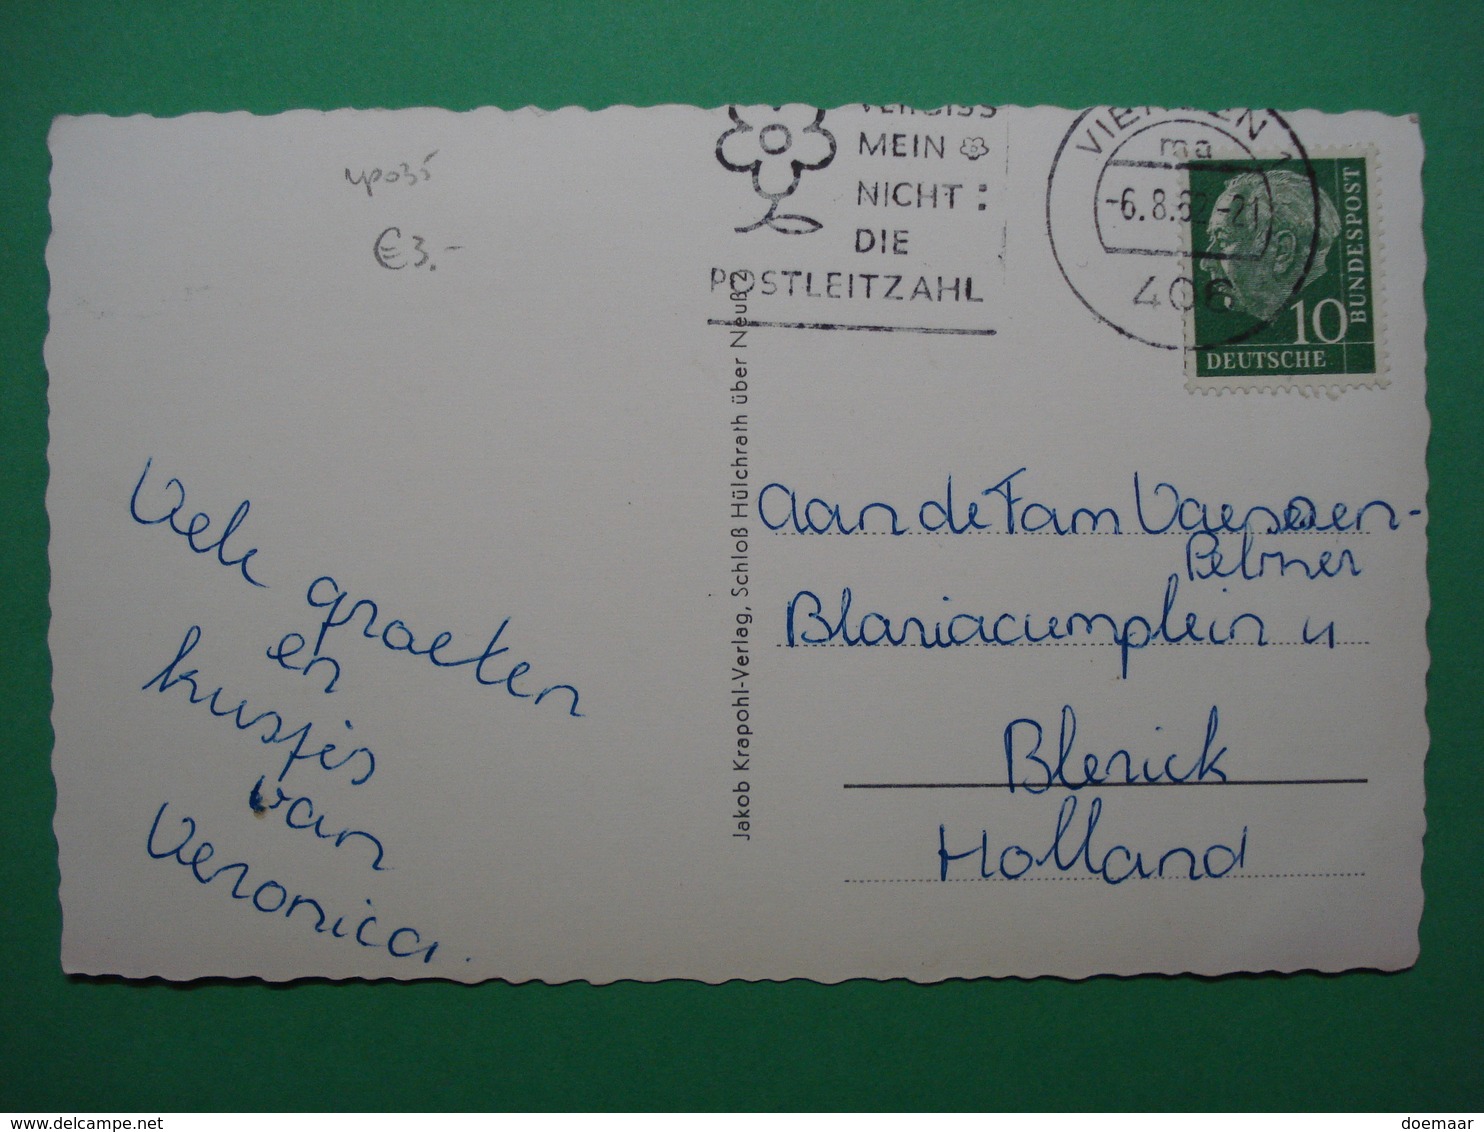 VERGISS
MEIN
NICHT:
DIE
POSTLEITZAHL
VIERSEN 1
ma
-6.8.62-21
406
10
DEUTSCHE
BUNDESPOST
€3.-
Jakob Krapohl-Verlag, Schloß Hülchrath über Neuß 2
Vele groeten
en
kusjes
van
Veronica.
Aan de Fam Vaessen-
Blariacumplein 4
Blerick
Holland
delcampe.net
doemaar